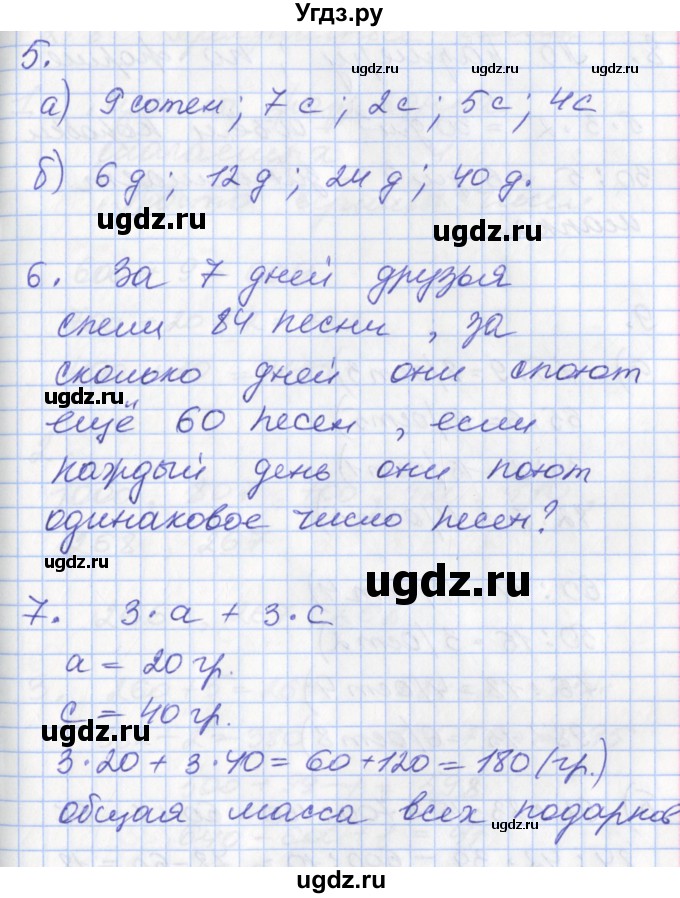 Угдз.ру
5.
ugdz.ru ugdz.ru
а) 9 сотен; 7 с; 2 с; 5 с; 4 с
б) 6 д; 12 д; 24 д; 40 д.
ugdz.ru ugdz.ru
6. За 7 дней друзья
спели 84 песни, за
сколько дней они споют
ugdz.ru ugdz.ru
ещё 60 песен, если
каждый день они поют
одинаковое число песен?
ugdz.ru ugdz.ru
ugdz.ru
7. 3·а + 3·с
а = 20 гр.
с = 40 гр.
ugdz.ru ugdz.ru
3·20 + 3·40 = 60 + 120 = 180 (гр.)
общая масса всех подарков
ugdz.ru
ugdz.ru
ugdz.ru